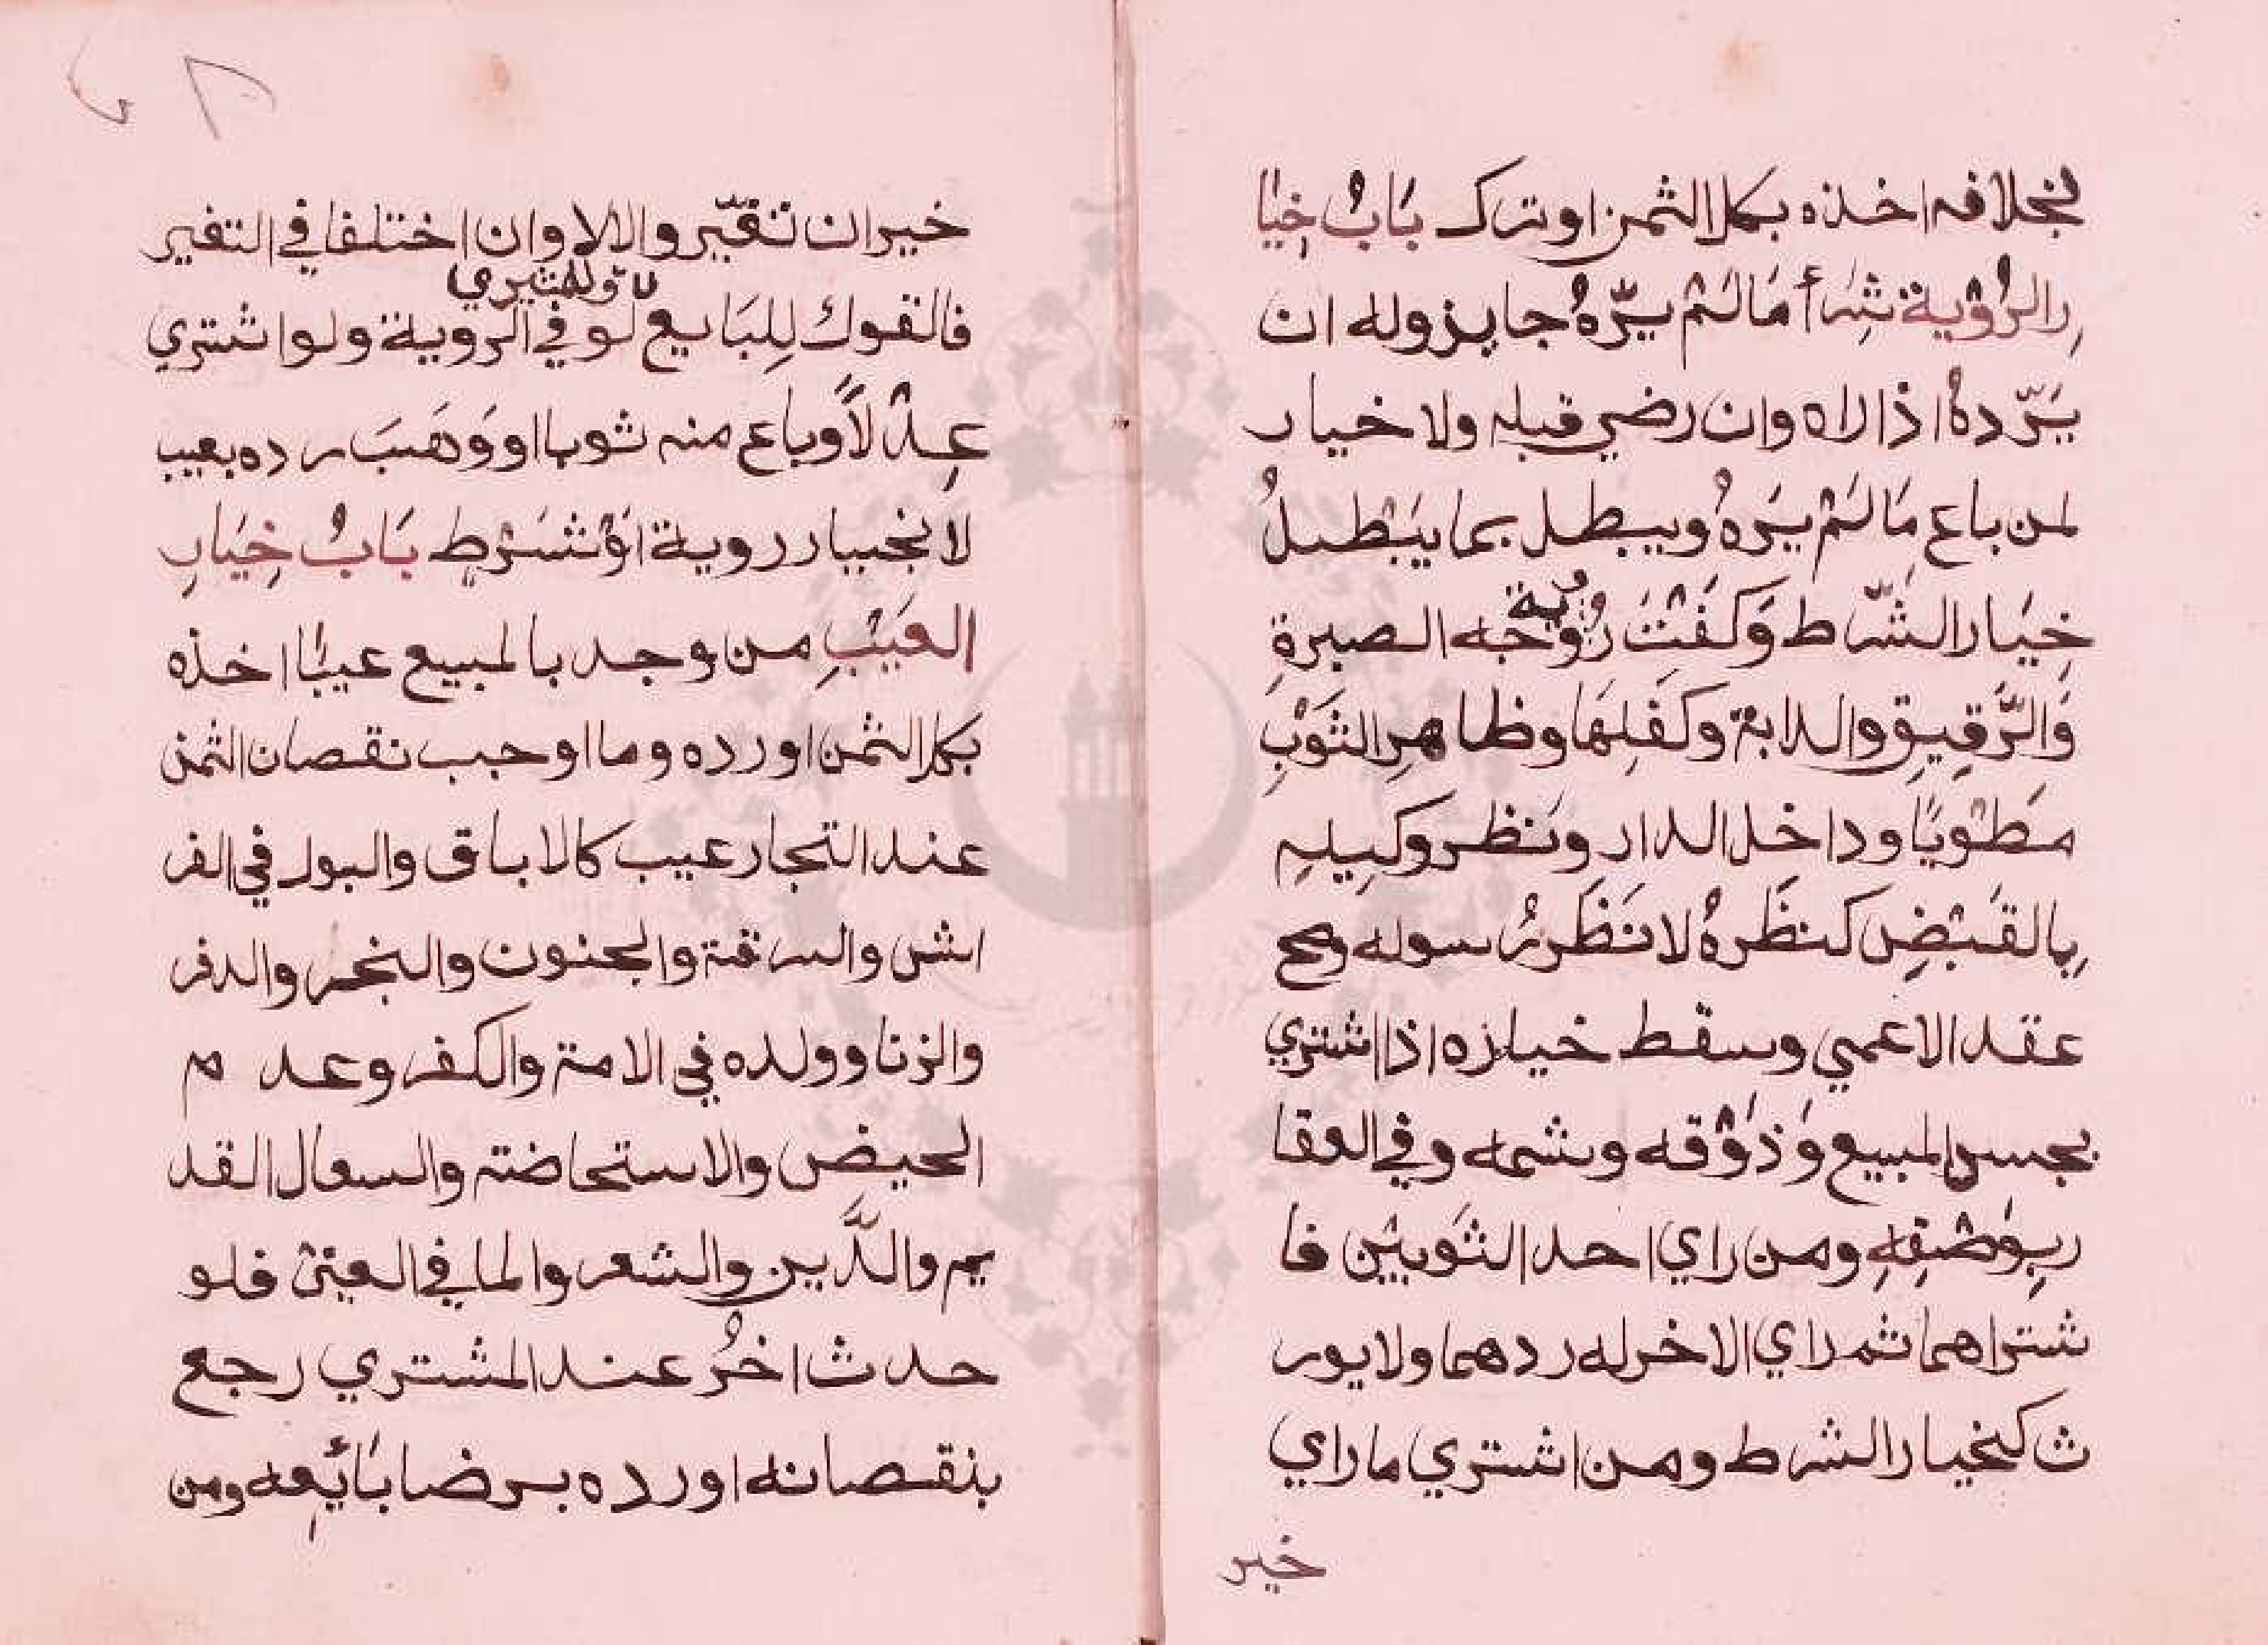 بخلافه اخذه بكل الثمن او ترك بَابُ خِيَا
رِ الرُؤْية شِرَأ مَا لَمْ يَرَّهُ جايز وله ان
يَرّدهُ اذا راه وان رضي قبله ولا خيار
لمن باع مَا لَمْ يَرَهُ ويبطل بما يَبْطلُ
خِيَار الشّرط وَكَفَتْ رُؤية وجه الصبرة
وَالرَّقِيقِ والدابة وكَفَلِهَا وظاهرِ الثَوْبِ
مَطْوِيًا وداخل الدار ونظر وكيله
بِالقَبْضِ كنظَرهُ لا نَظَر رُسوله وصح
عقد الاعمي وسقط خياره اذا اشتري
بجس المبيع وَذَوْقه وشمه وفي العقا
ربِوَصْفِهِ ومن راي احد الثَوبَيْن فا
شتراهما ثم راي الاخر له ردهما ولا يور
ث كخيار الشرط ومن اشتري ما راي
خير
خير ان تغيّر والا لا وان اختلفا في التغير
فالقول لِلبَايع لو وللمشتري في الروية ولو اشتري
عِدْلاً وباع منه ثوبا او وَهَبَ رده بعيب
لا بخيار روية اوْ شَرْطٍ بَابُ خِيَارِ
العَيْبِ من وجد بالمبيع عيبًا اخذه
بكل الثمن او رده وما اوجب نقصان الثمن
عند التجار عيب كالاباق والبول في الفر
اش والسرقة والجنون والبخر والدفر
والزنا وولده في الامة والكفر وعدم
الحيض والاستحاضة والسعال القد
يم والدَّين والشعر والما في العيْن فلو
حدث اخرُ عند المشتري رجع
بنقصانه او رده برضا بَائِعه ومن